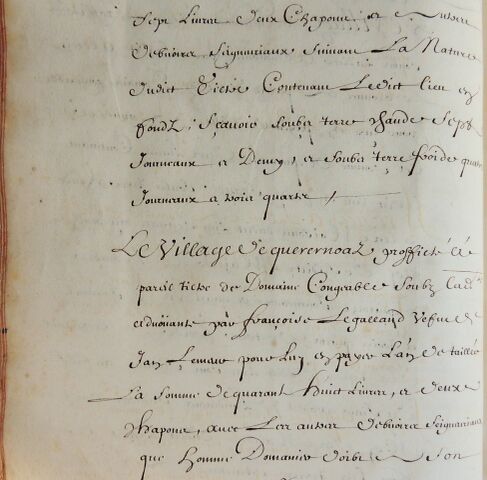 Sept Livres deux Chapons et autres
debvoirs Seigneuriaux suivant La Nature
dudict tictre Contenant Ledict lieu en
fondz, Scavoir soubz terre chaude Sept
Journeaux et Demy, et soubz terre froide
Journeaux et trois quartz
LE VILLAGE de querernoal, proffitté
pareil tictre de Domaine Congeable Soubz
par françoise Le galland Vefve de
Jan pour Luy en payer L'an de
La somme de quarant huict Livres, et deux
Chapons, avec Les autres debvoirs Seigneuriaux
que homme Domanier doibt à Son